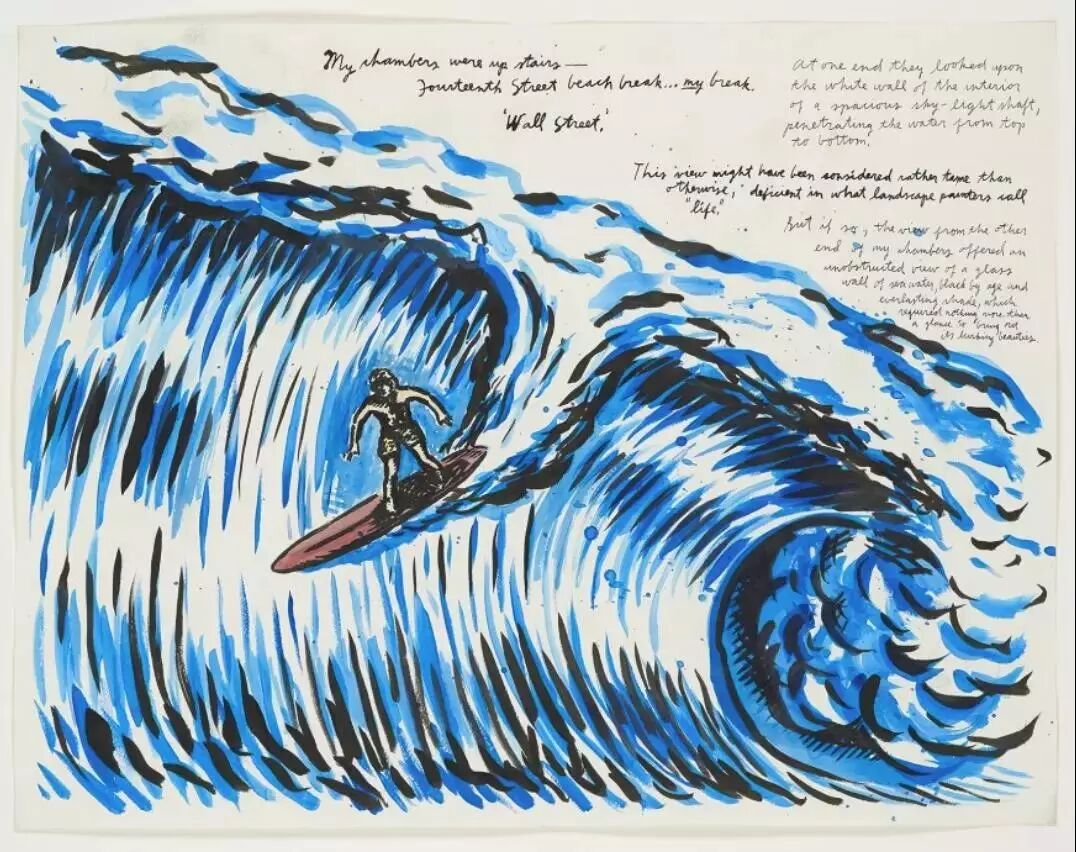 My chambers were up stairs—
Fourteenth Street beach break... my break.
'Wall Street.'
At one end they looked upon
the white wall of the interior
of a spacious sky-light shaft,
penetrating the water from top
to bottom.
This view might have been considered rather tame than
otherwise, deficient in what landscape painters call
"life."
But if so, the view from the other
end of my chambers offered an
unobstructed view of a glass
wall of sea water, black by age and
everlasting shade, which
required nothing more than
a glance to bring out
its lurking beauties.